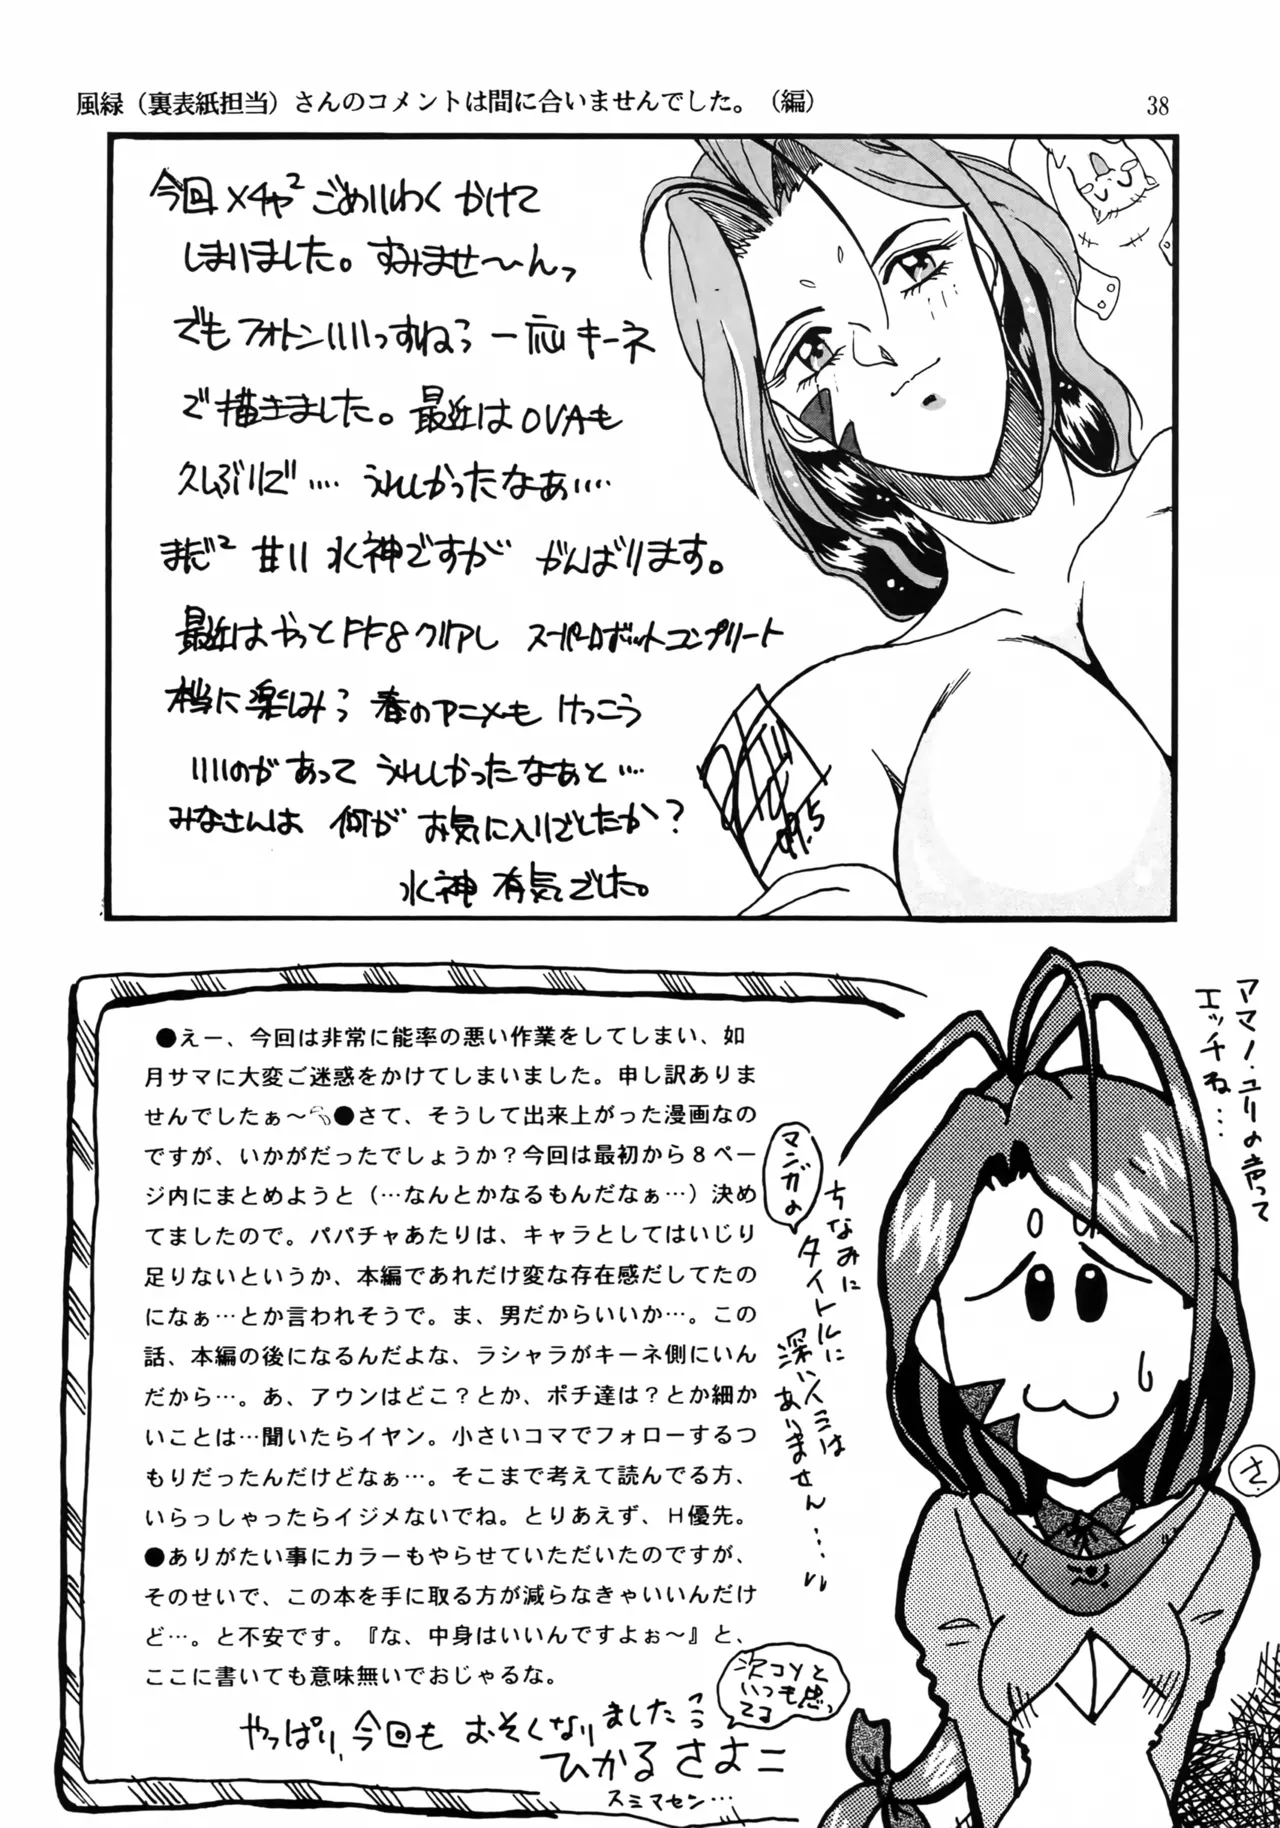 風緑（裏表紙担当）さんのコメントは間に合いませんでした。（編）
38
今回メチャ²ごめいわくかけて
しまいました。すみませ〜んっ
でもフォトンいいっすねっ一応キーネ
で描きました。最近はOVAも
久しぶりで‥‥うれしかったなぁ‥‥
まだ²#11水神ですが がんばります。
最近はやっとFF8クリアし スーパーロボットコンプリート
本当に楽しみっ 春のアニメもけっこう
いいのがあって うれしかったなぁと…
みなさんは 何が お気に入りでしたか？
水神 有気でした。
●えー、今回は非常に能率の悪い作業をしてしまい、如
月サマに大変ご迷惑をかけてしまいました。申し訳ありま
せんでしたぁ〜●さて、そうして出来上がった漫画なの
ですが、いかがだったでしょうか？今回は最初から８ペー
ジ内にまとめようと（…なんとかなるもんだなぁ…）決め
てましたので。パパチャあたりは、キャラとしてはいじり
足りないというか、本編であれだけ変な存在感だしてたの
になぁ…とか言われそうで。ま、男だからいいか…。この
話、本編の後になるんだよな、ラシャラがキーネ側にいん
だから…。あ、アウンはどこ？とか、ポチ達は？とか細か
いことは…聞いたらイヤン。小さいコマでフォローするつ
もりだったんだけどなぁ…。そこまで考えて読んでる方、
いらっしゃったらイジメないでね。とりあえず、Ｈ優先。
●ありがたい事にカラーもやらせていただいたのですが、
そのせいで、この本を手に取る方が減らなきゃいいんだけ
ど…。と不安です。『な、中身はいいんですよぉ〜』と、
ここに書いても意味無いでおじゃるな。
やっぱり、今回もおそくなりました…
ひかるさよこ
スミマセン…
いつも思っ
てる
アマノ・ユリの声って
エッチね…
ちなみに
マンガの
タイトルに
深いイミは
ありません…
さ